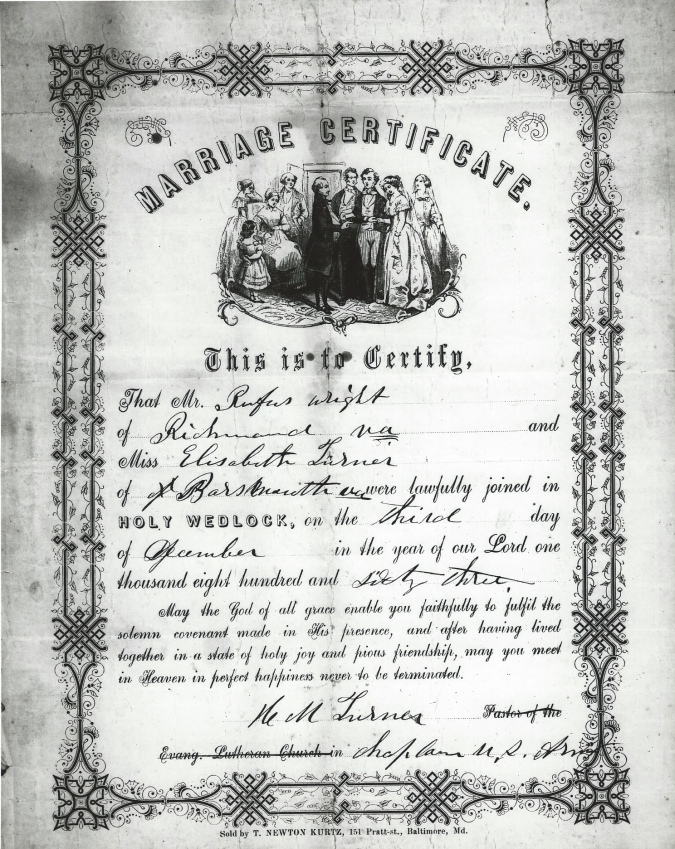 MARRIAGE CERTIFICATE.
This is to Certify,
That Mr. Rufus Wright
of Richmond va and
Miss Elisabeth Turner
of va were lawfully joined in
HOLY WEDLOCK, on the third day
of December in the year of our Lord one
thousand eight hundred and sixty three
May the God of all grace enable you faithfully to fulfil the
solemn covenant made in His presence, and after having lived
together in a state of holy joy and pious friendship, may you meet
in Heaven in perfect happiness never to be terminated.
H M Turner Pastor of the
Evang. Lutheran Church in Chaplain U.S. Army
Sold by T. NEWTON KURTZ, 151 Pratt-st., Baltimore, Md.